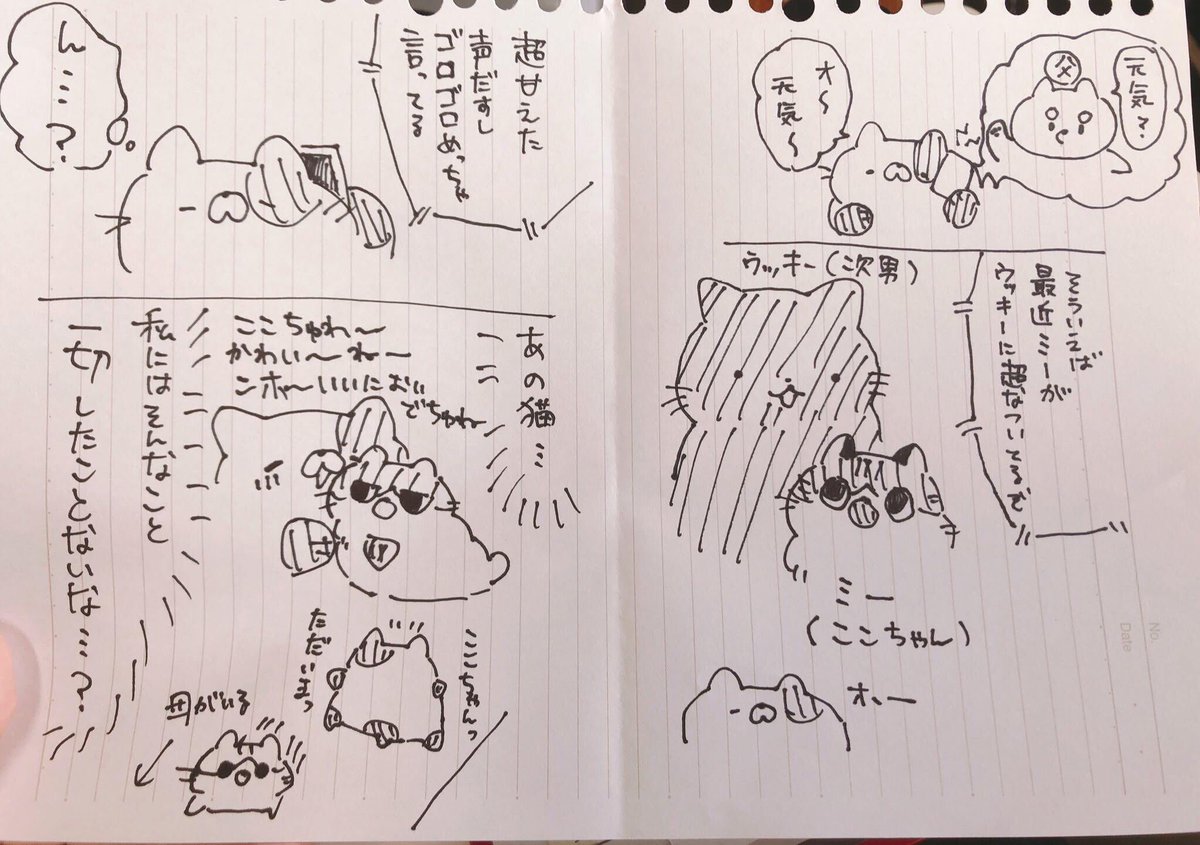 元気?
父
オ〜
元気〜
そういえば
最近ミーが
ウッキーに超なついてるぞ
ウッキー(次男)
ミー
(ここちゃん)
ホー
超甘えた
声だすし
ゴロゴロめっちゃ
言ってる
ん…?
あの猫…
ここちゅわ〜
かわい〜ね〜
ンホ〜いいにおい
でちゅね
私にはそんなこと
一切したことないな…?
ここちゃんっ
ただいまっ
母がいる
No.
Date